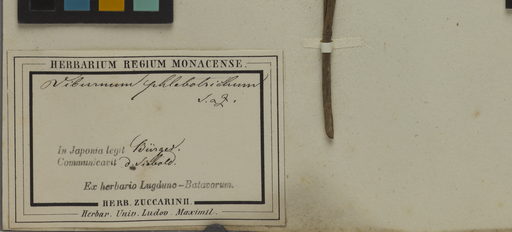 HERBARIUM REGIUM MONACENSE.
Viburnum phlebotrichum
S. Z.
In Japonia legit Bürger.
Communicavit d. Siebold.
Ex herbario Lugduno-Batavorum.
HERB. ZUCCARINII.
Herbar. Univ. Ludov. Maximil.